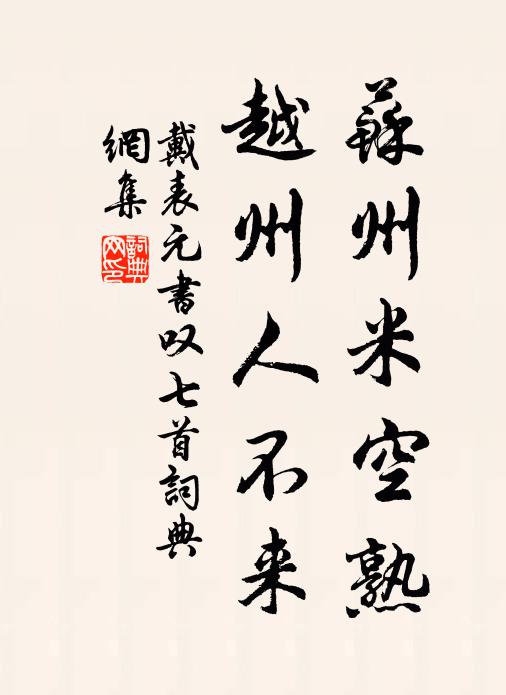 蘇州米空熟
越州人不来
戴表元書叹七首詞典
網集
詞典
网印